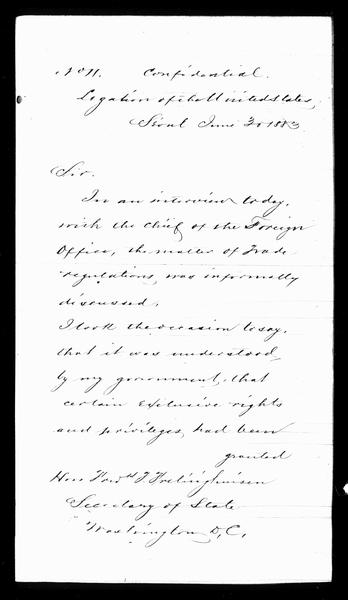 No 11. Confidential.
Legation of the United States,
Seoul June 3d 1883
Sir.
In an interview today,
with the Chief of the Foreign
Office, the matter of Trade
regulations, was informally
discussed,
I took the occasion to say,
that it was understood,
by my government, that
certain exclusive rights
and privileges, had been
granted
Hon Fredk T Frelinghuisen
Secretary of State
Washington D,C,